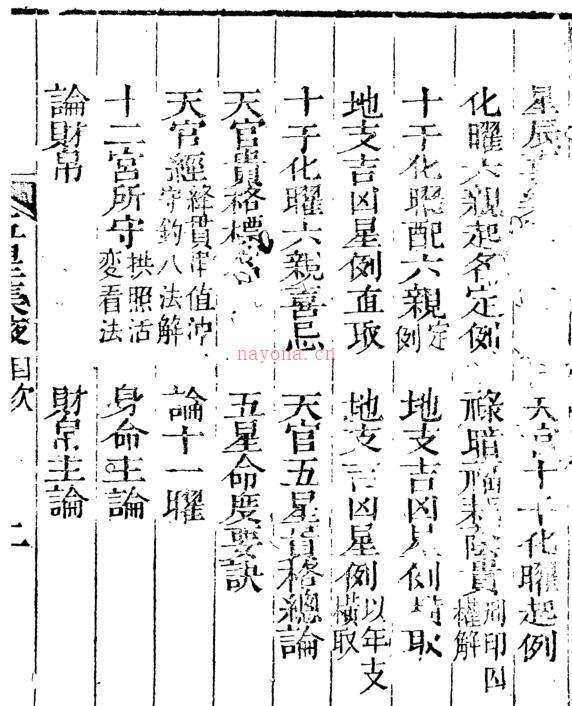 星辰
天官十干化曜起例
化曜六親起名定例
祿暗福耗蔭貴刑印囚權解
十干化曜配六親定例
地支吉凶星例 取
地支吉凶星例直取
地支吉凶星例以年支橫取
十干化曜六親喜忌
天官五星貴格總論
天官貴格標
五星命度要訣
天官經經貫串值沖守釣八法解
論十一曜
十二宮所守拱照活變看法
身命主論
論財帛
財帛主論
目次 二
nayona.cn